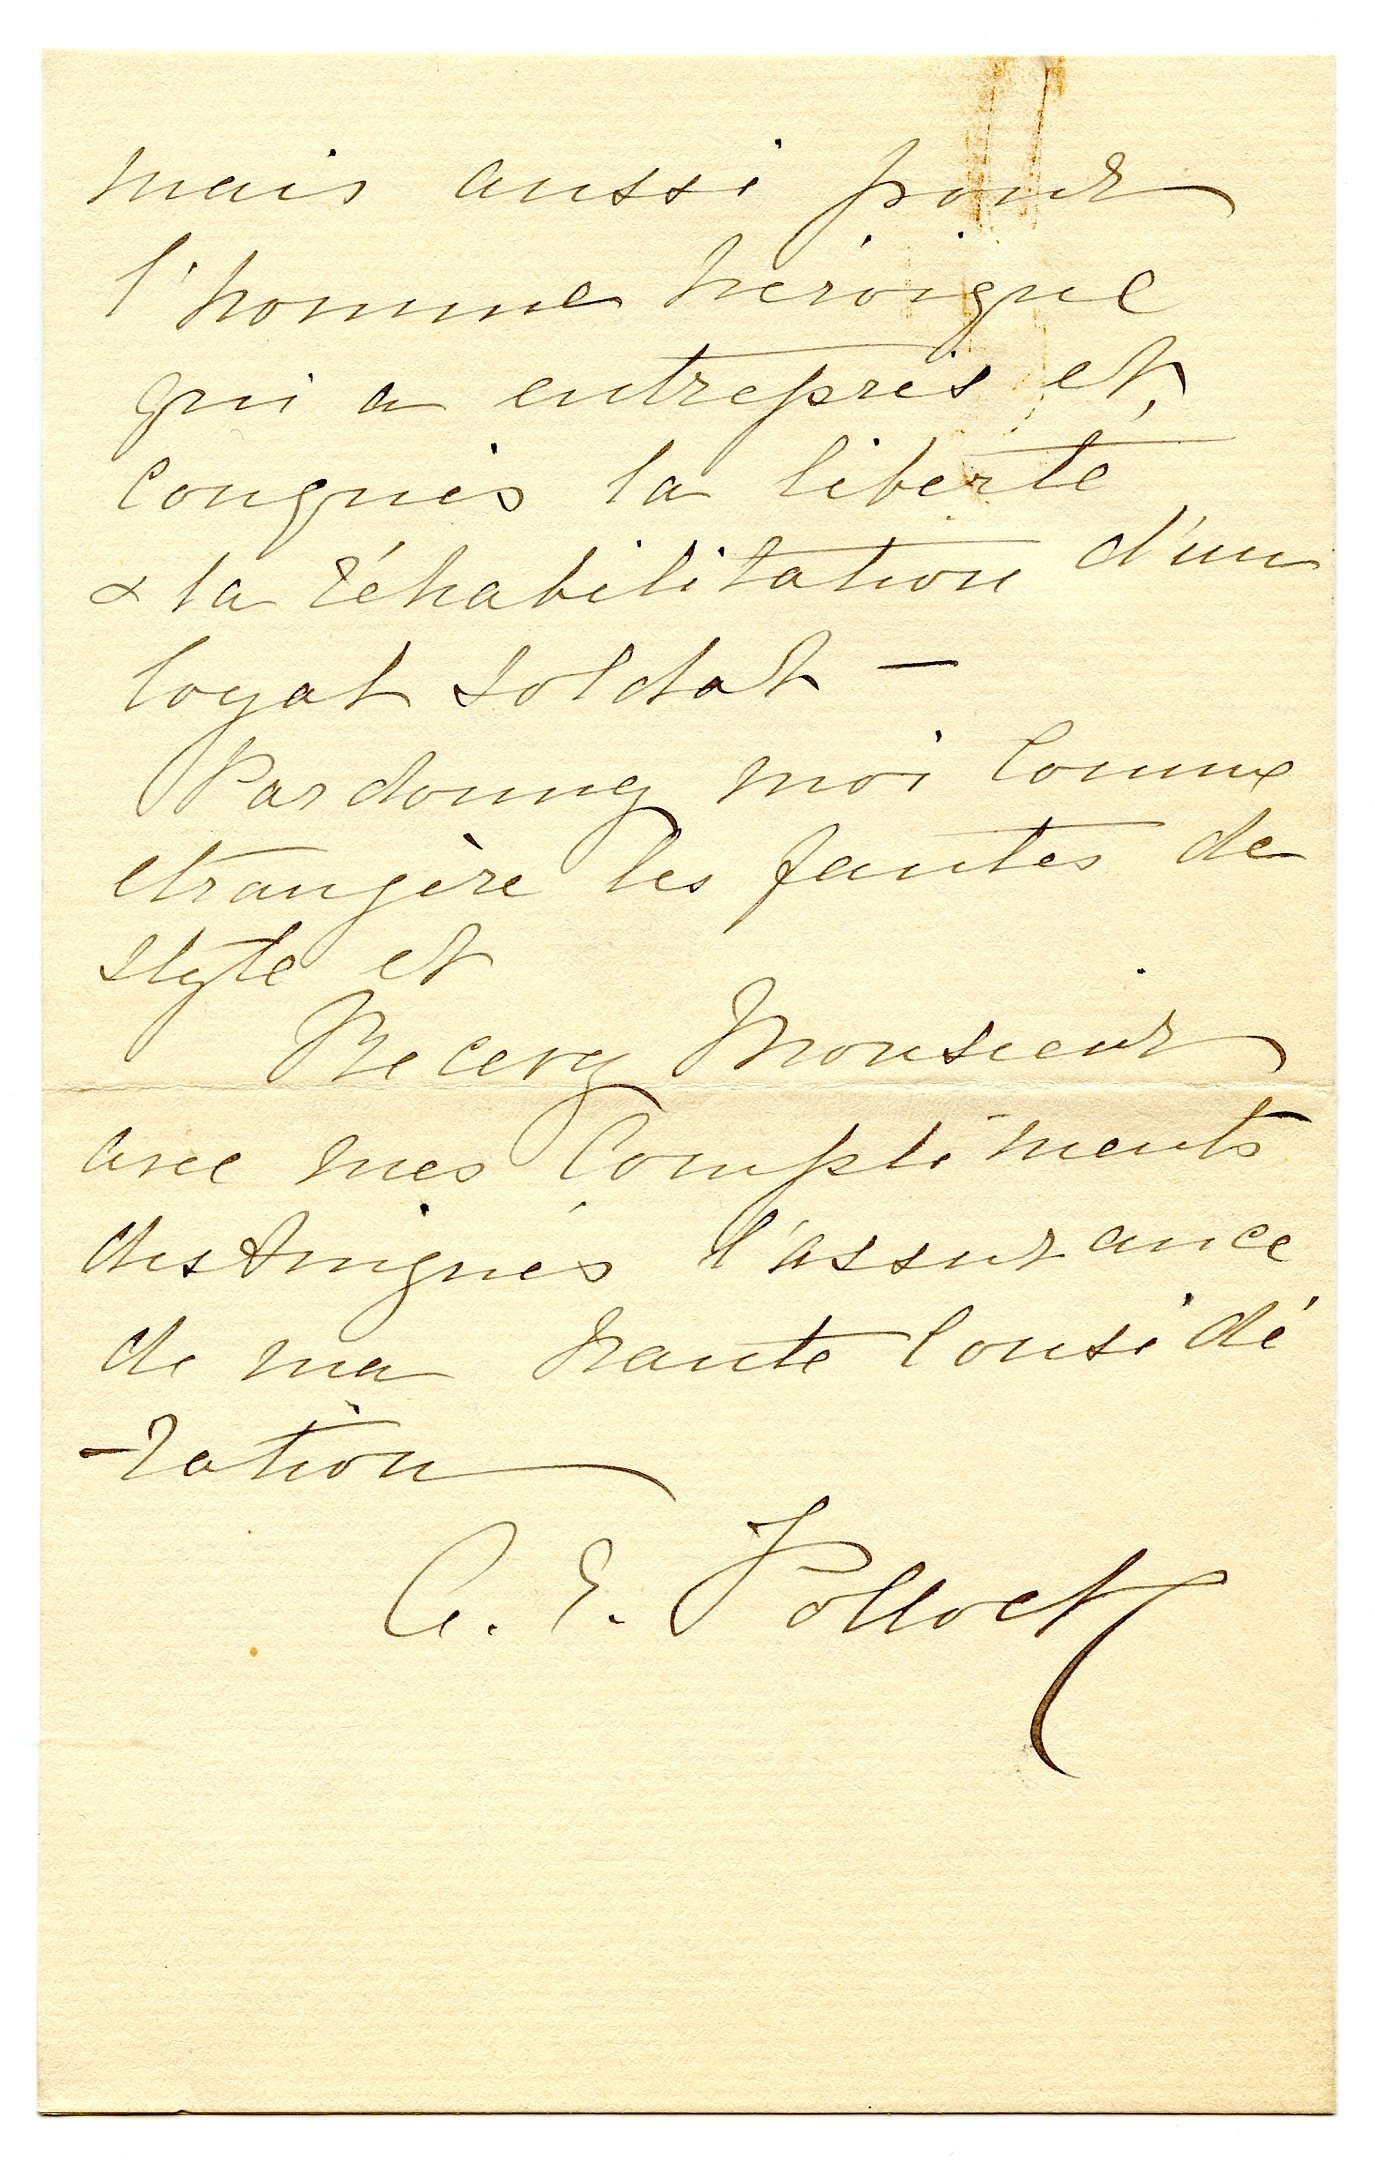 mais aussi pour
l'homme héroique
qui a entrepris et,
conquis la liberté
& la réhabilitation d'un
loyal soldat —
Pardonnez moi comme
etrangère les fautes de
style et
Recevez Monsieur
avec mes compliments
distingués l'assurance
de ma haute considé
-ration
C. E. Pollock